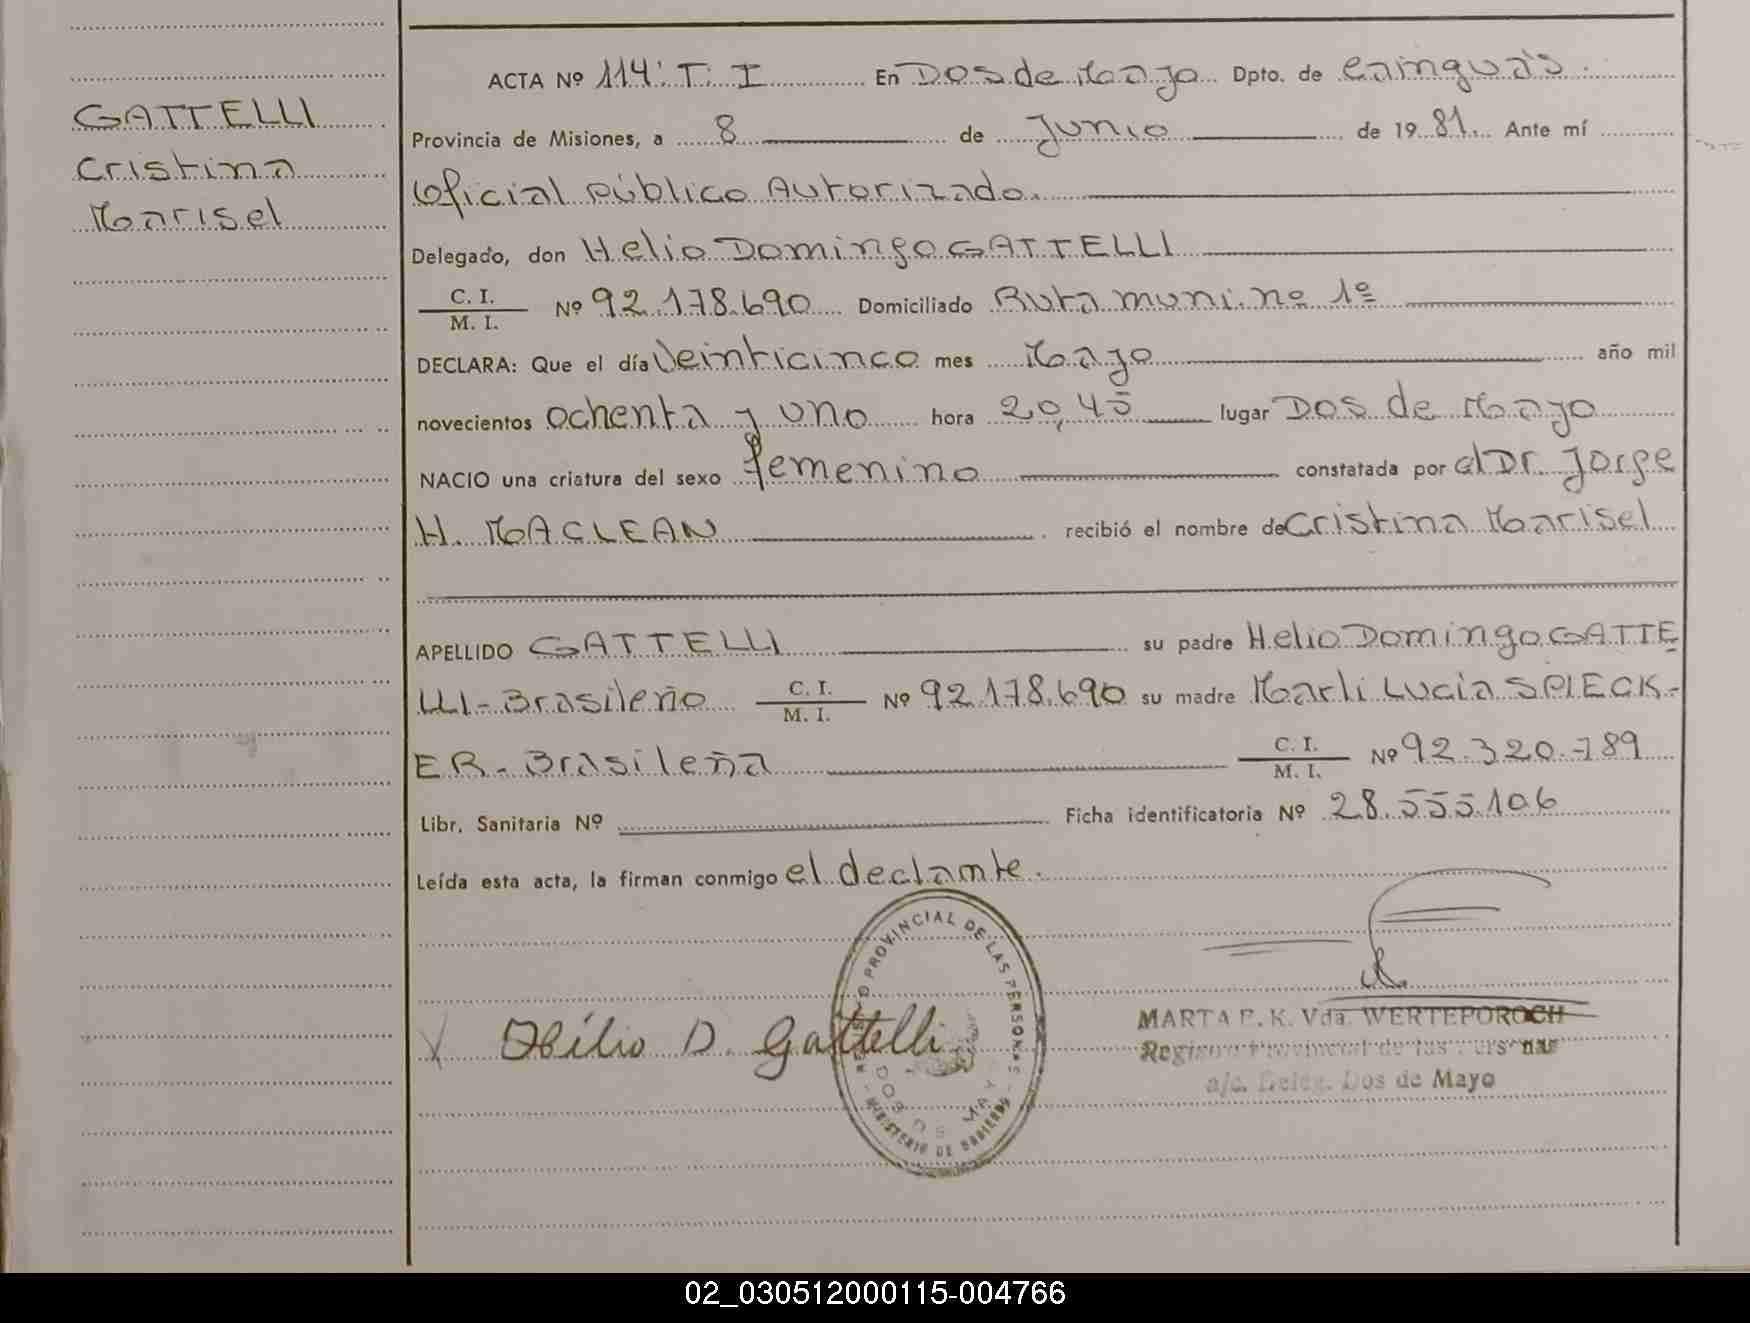 GATTELLI
Cristina
Marisel
ACTA Nº 114: T: I En Dos de Mayo Dpto. de Cainguás.
Provincia de Misiones, a 8 de Junio de 1981. Ante mí
Oficial Público Autorizado.
Delegado, don Helio Domingo GATTELLI
C. I.
M. I. Nº 92.178.690 Domiciliado Ruta muni. nº 1º
DECLARA: Que el día Veinticinco mes Mayo año mil
novecientos ochenta y uno hora 20,45 lugar Dos de Mayo
NACIO una criatura del sexo femenino constatada por el Dr. Jorge
H. MACLEAN . recibió el nombre de Cristina Marisel
APELLIDO GATTELLI su padre Helio Domingo GATTE
LLI - Brasileño C. I.
M. I. Nº 92.178.690 su madre Marli Lucia SPIECK-
ER - Brasileña C. I.
M. I. Nº 92.320.789
Libr. Sanitaria Nº Ficha identificatoria Nº 28.555.106
Leída esta acta, la firman conmigo el declante.
PROVINCIAL DE LAS PERSONAS
DOS DE MAYO
MINISTERIO DE GOBIERNO
D. Gattelli
MARTA P. K. Vda. WERTEPOROCH
Registro Provincial de las Personas
a/c. Deleg. Dos de Mayo
02_030512000115-004766